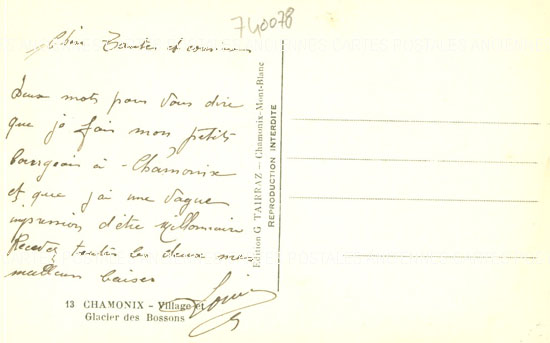 740078
Chère Tantes et cousines
Deux mots pour vous dire
que je fais mon petits
bourgeois à - Chamonix
et que j'ai une vague
impression d'être millionnaire
Recevez toutes les deux mes
meilleurs baisers
Louis
13 CHAMONIX - Village et
Glacier des Bossons
Edition G TAIRRAZ - Chamonix-Mont-Blanc
REPRODUCTION INTERDITE
CARTES POSTALES ANCIENNES